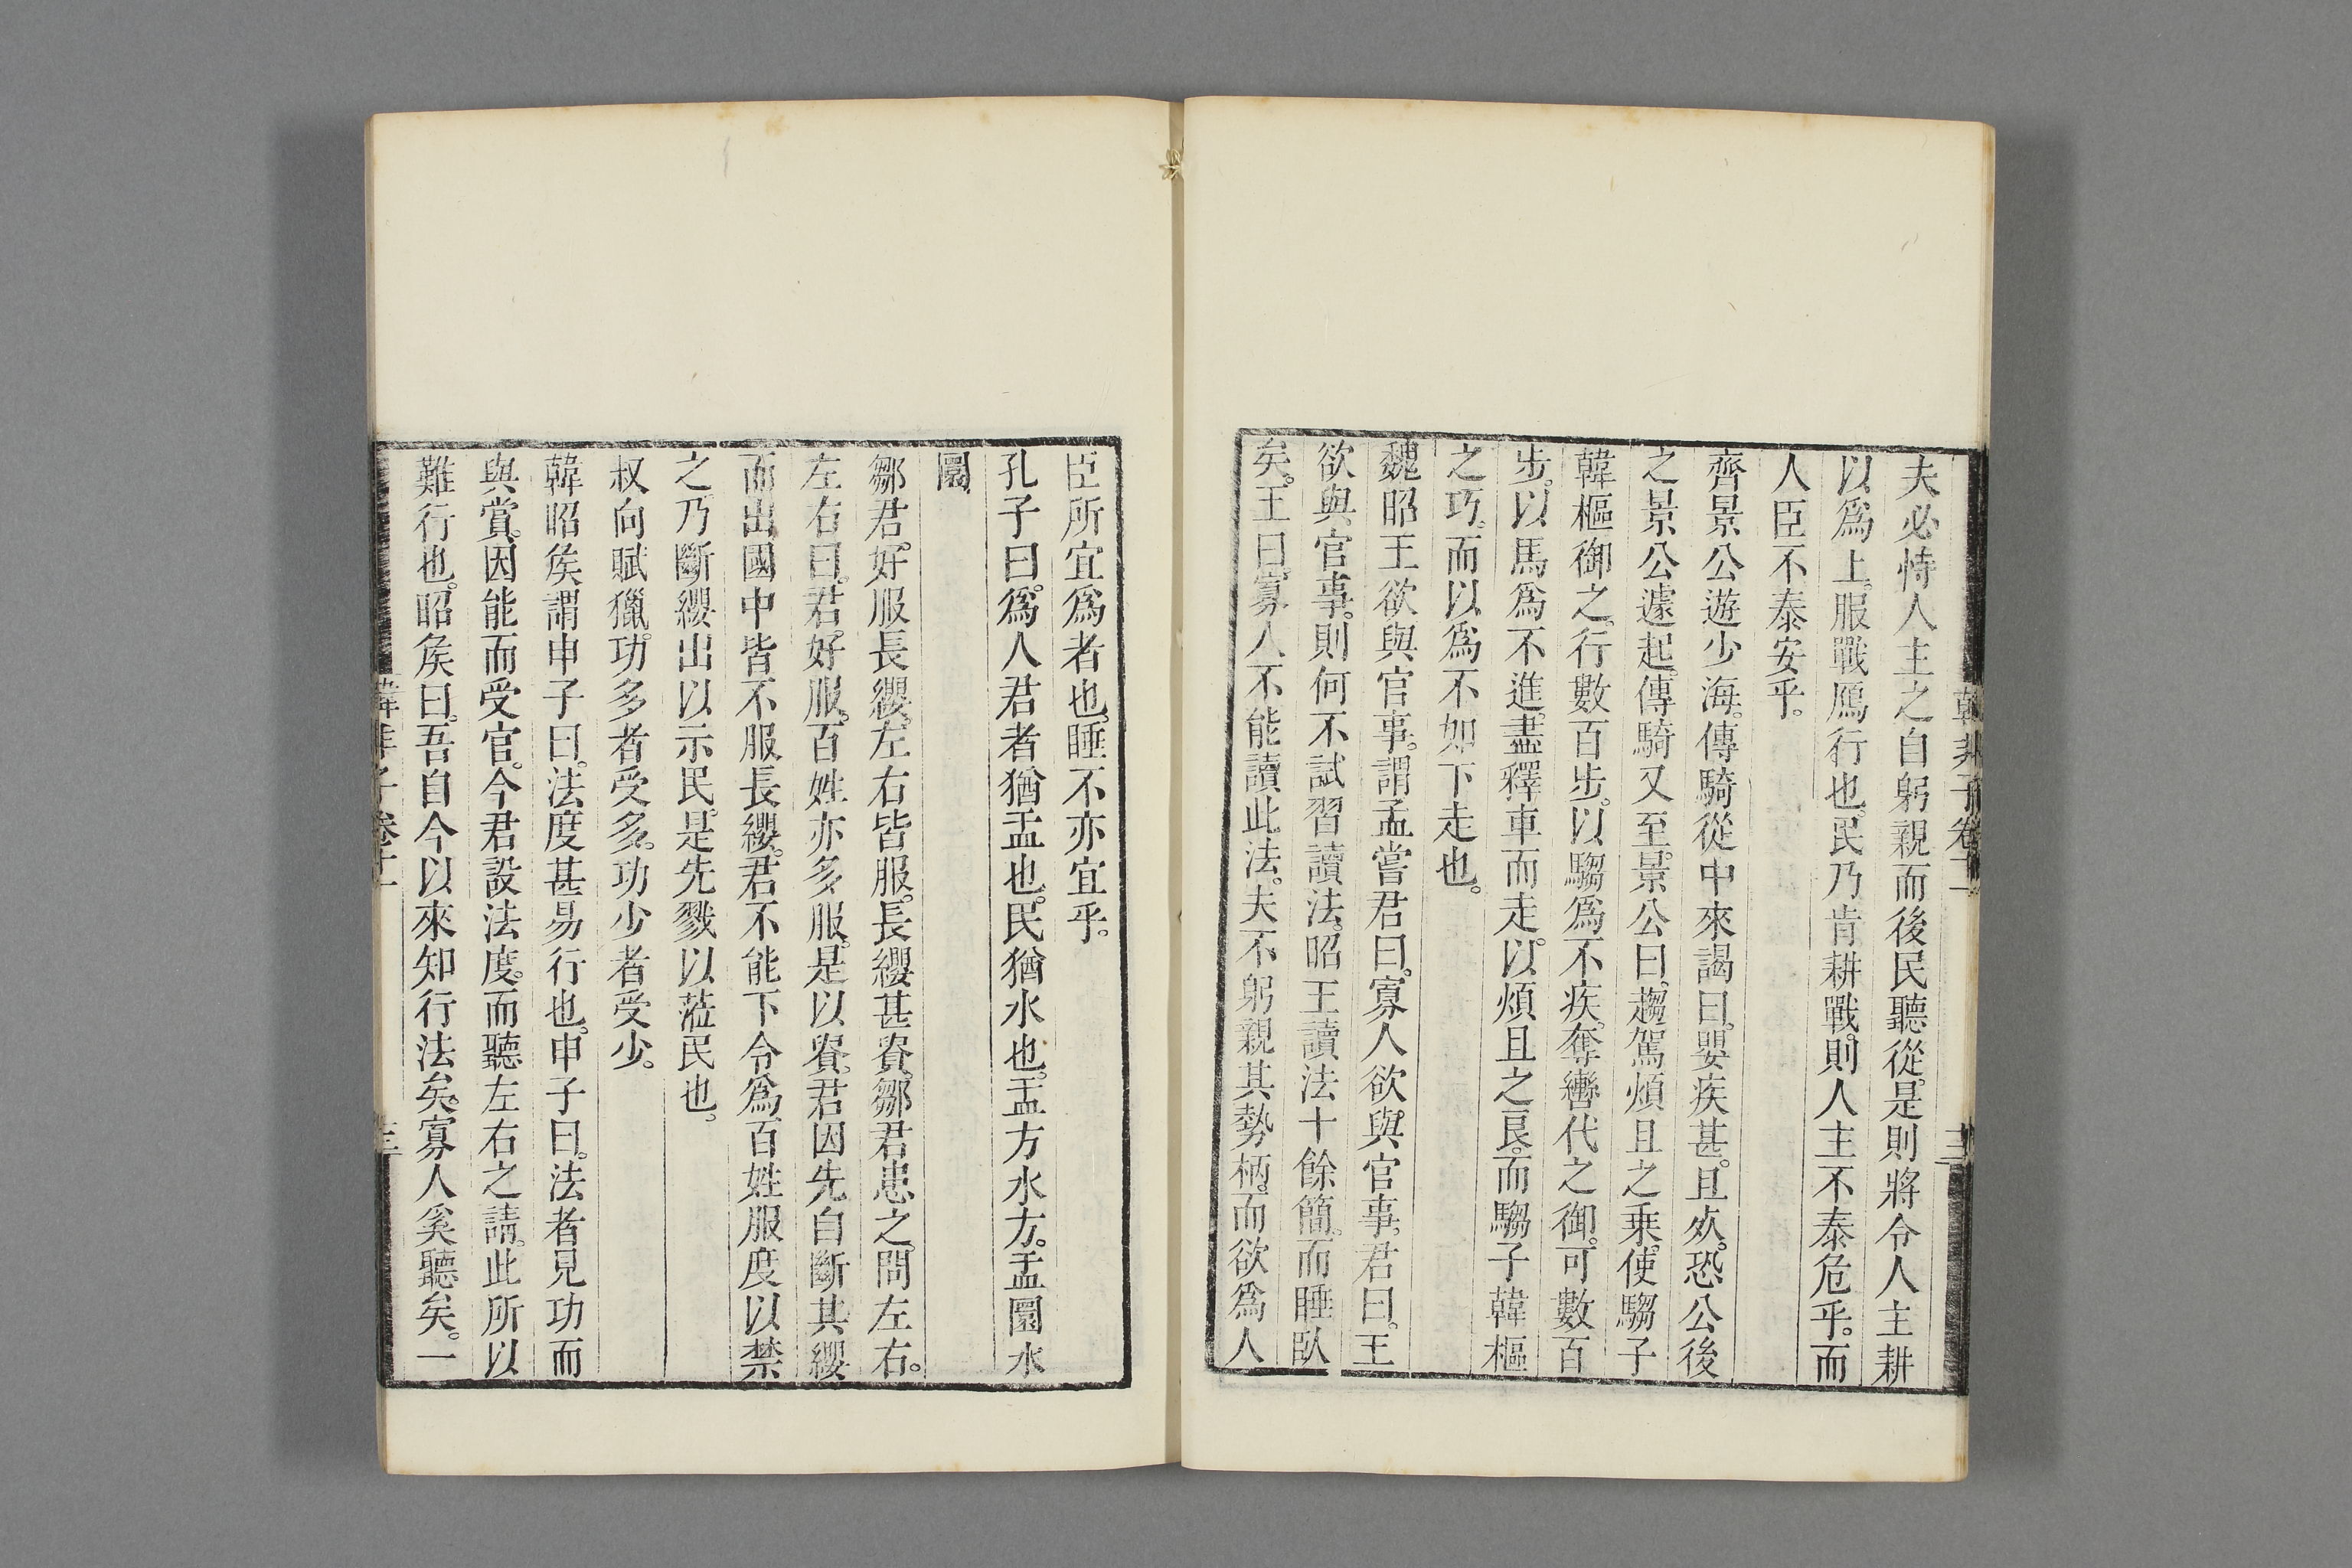 韓非子卷十一
三
夫必恃人主之自躬親而後民聽從。是則將令人主耕
以爲上。服戰鴈行也。民乃肯耕戰。則人主不泰危乎。而
人臣不泰安乎。
齊景公遊少海。傳騎從中來謁曰。嬰疾甚。且歿。恐公後
之景公遽起。傳騎又至。景公曰。趨駕煩且之乗。使騶子
韓樞御之。行數百步。以騶爲不疾。奪轡代之御。可數百
步。以馬爲不進。盡釋車而走。以煩且之良。而騶子韓樞
之巧。而以爲不如下走也。
魏昭王欲與官事。謂孟嘗君曰。寡人欲與官事。君曰。王
欲與官事。則何不試習讀法。昭王讀法十餘簡。而睡臥
矣。王曰。寡人不能讀此法。夫不躬親其勢柄。而欲爲人
臣所宜爲者也。睡不亦宜乎。
孔子曰。爲人君者猶盂也。民猶水也。盂方水方。盂圜水
圜。
鄒君。好服長纓。左右皆服。長纓甚貴。鄒君患之。問左右。
左右曰。君。好服。百姓亦多服。是以貴。君因先自斷其纓
而出。國中皆不服長纓。君不能下令爲百姓服度以禁
之乃斷纓出以示民。是先戮以蒞民也。
叔向賦獵。功多者受多。功少者受少。
韓昭矦謂申子曰。法度甚易行也。申子曰。法者見功而
與賞。因能而受官。今君設法度。而聽左右之請。此所以
難行也。昭矦曰。吾自今以來知行法矣。寡人奚聽矣。一
韓非子卷十一
三